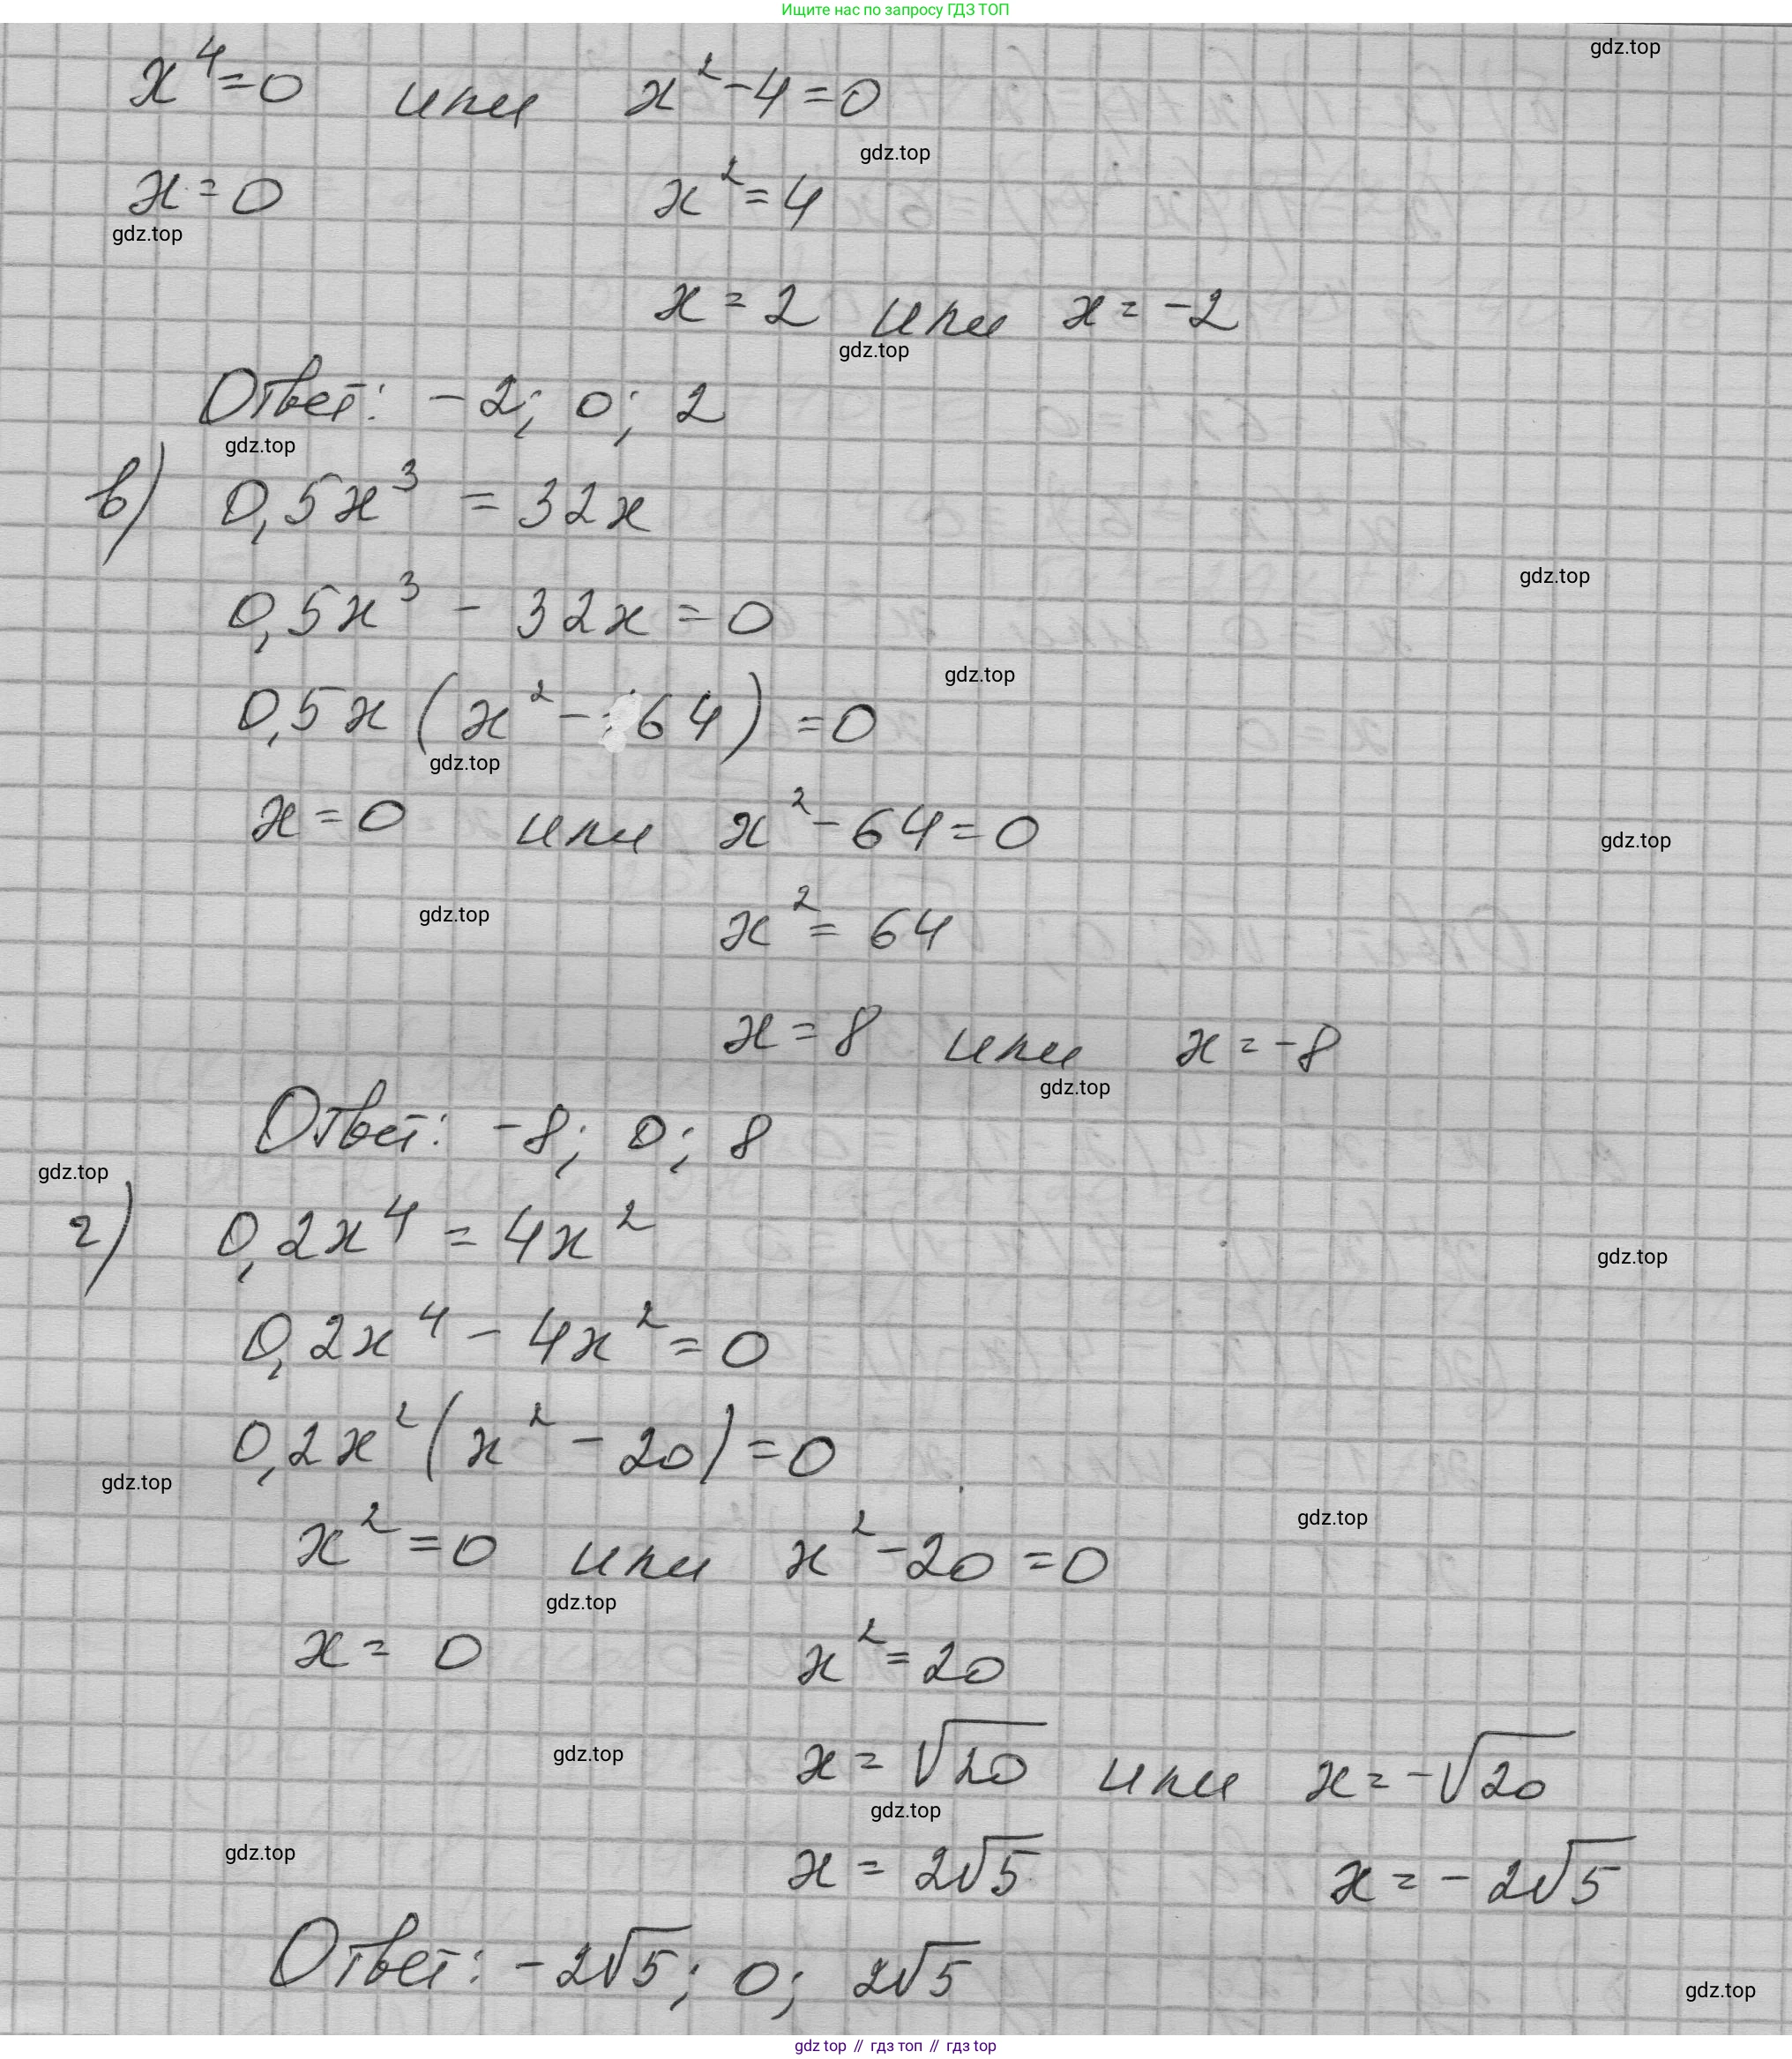 Ищите нас по запросу ГДЗ ТОП
gdz.top
x⁴=0 или x²-4=0
gdz.top
x=0 x²=4
gdz.top
x=2 или x=-2
gdz.top
Ответ: -2; 0; 2
gdz.top
в) 0,5x³ = 32x
gdz.top
0,5x³ - 32x = 0
gdz.top
0,5x(x²-64)=0
gdz.top
x=0 или x²-64=0
gdz.top
gdz.top
x²=64
x=8 или x=-8
gdz.top
Ответ: -8; 0; 8
gdz.top
г) 0,2x⁴=4x²
gdz.top
0,2x⁴-4x²=0
0,2x²(x²-20)=0
gdz.top
gdz.top
x²=0 или x²-20=0
gdz.top
x=0 x²=20
gdz.top
x=√20 или x=-√20
gdz.top
gdz.top
x=2√5 x=-2√5
Ответ: -2√5; 0; 2√5
gdz.top
gdz top // гдз топ // гдз top